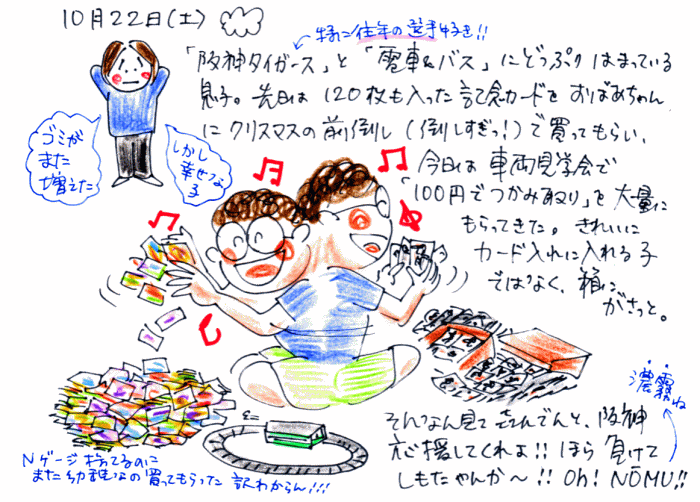 10月22日(土)
特に往年の選手好き!!
「阪神タイガース」と「電車&バス」にどっぷりはまっている
息子。先日は120枚も入った記念カードをおばあちゃん
にクリスマスの前倒し(倒しすぎっ!)で買ってもらい、
今日は車両見学会で
「100円でつかみどり」を大量に
もらってきた。きれいに
カード入れに入れる子
ではなく、箱に
がさっと。
ゴミが
また
増えた
しかし
幸せな
子
濃霧ね
そんなん見て喜んでんと、阪神
応援してくれよ!!ほら負けて
しもたやんか〜!!Oh! NŌMU!!
Nゲージ持ってるのに
また幼稚なの買ってもらった訳わからん!!!